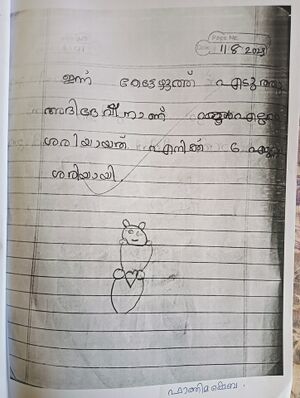 Page No.
Date 11 8 2023
ഇന്ന് കേട്ടെഴുത്ത് എടുത്തു
അഭിദേവിനാണ്
ശരിയായത് എനിക്ക് 6 എണ്ണം
ശരിയായി.
ഫാത്തിമ ഷെബ.